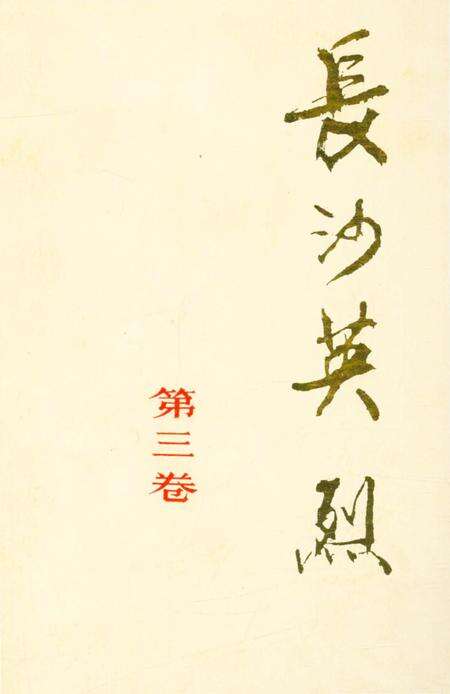 長沙英烈
第三卷